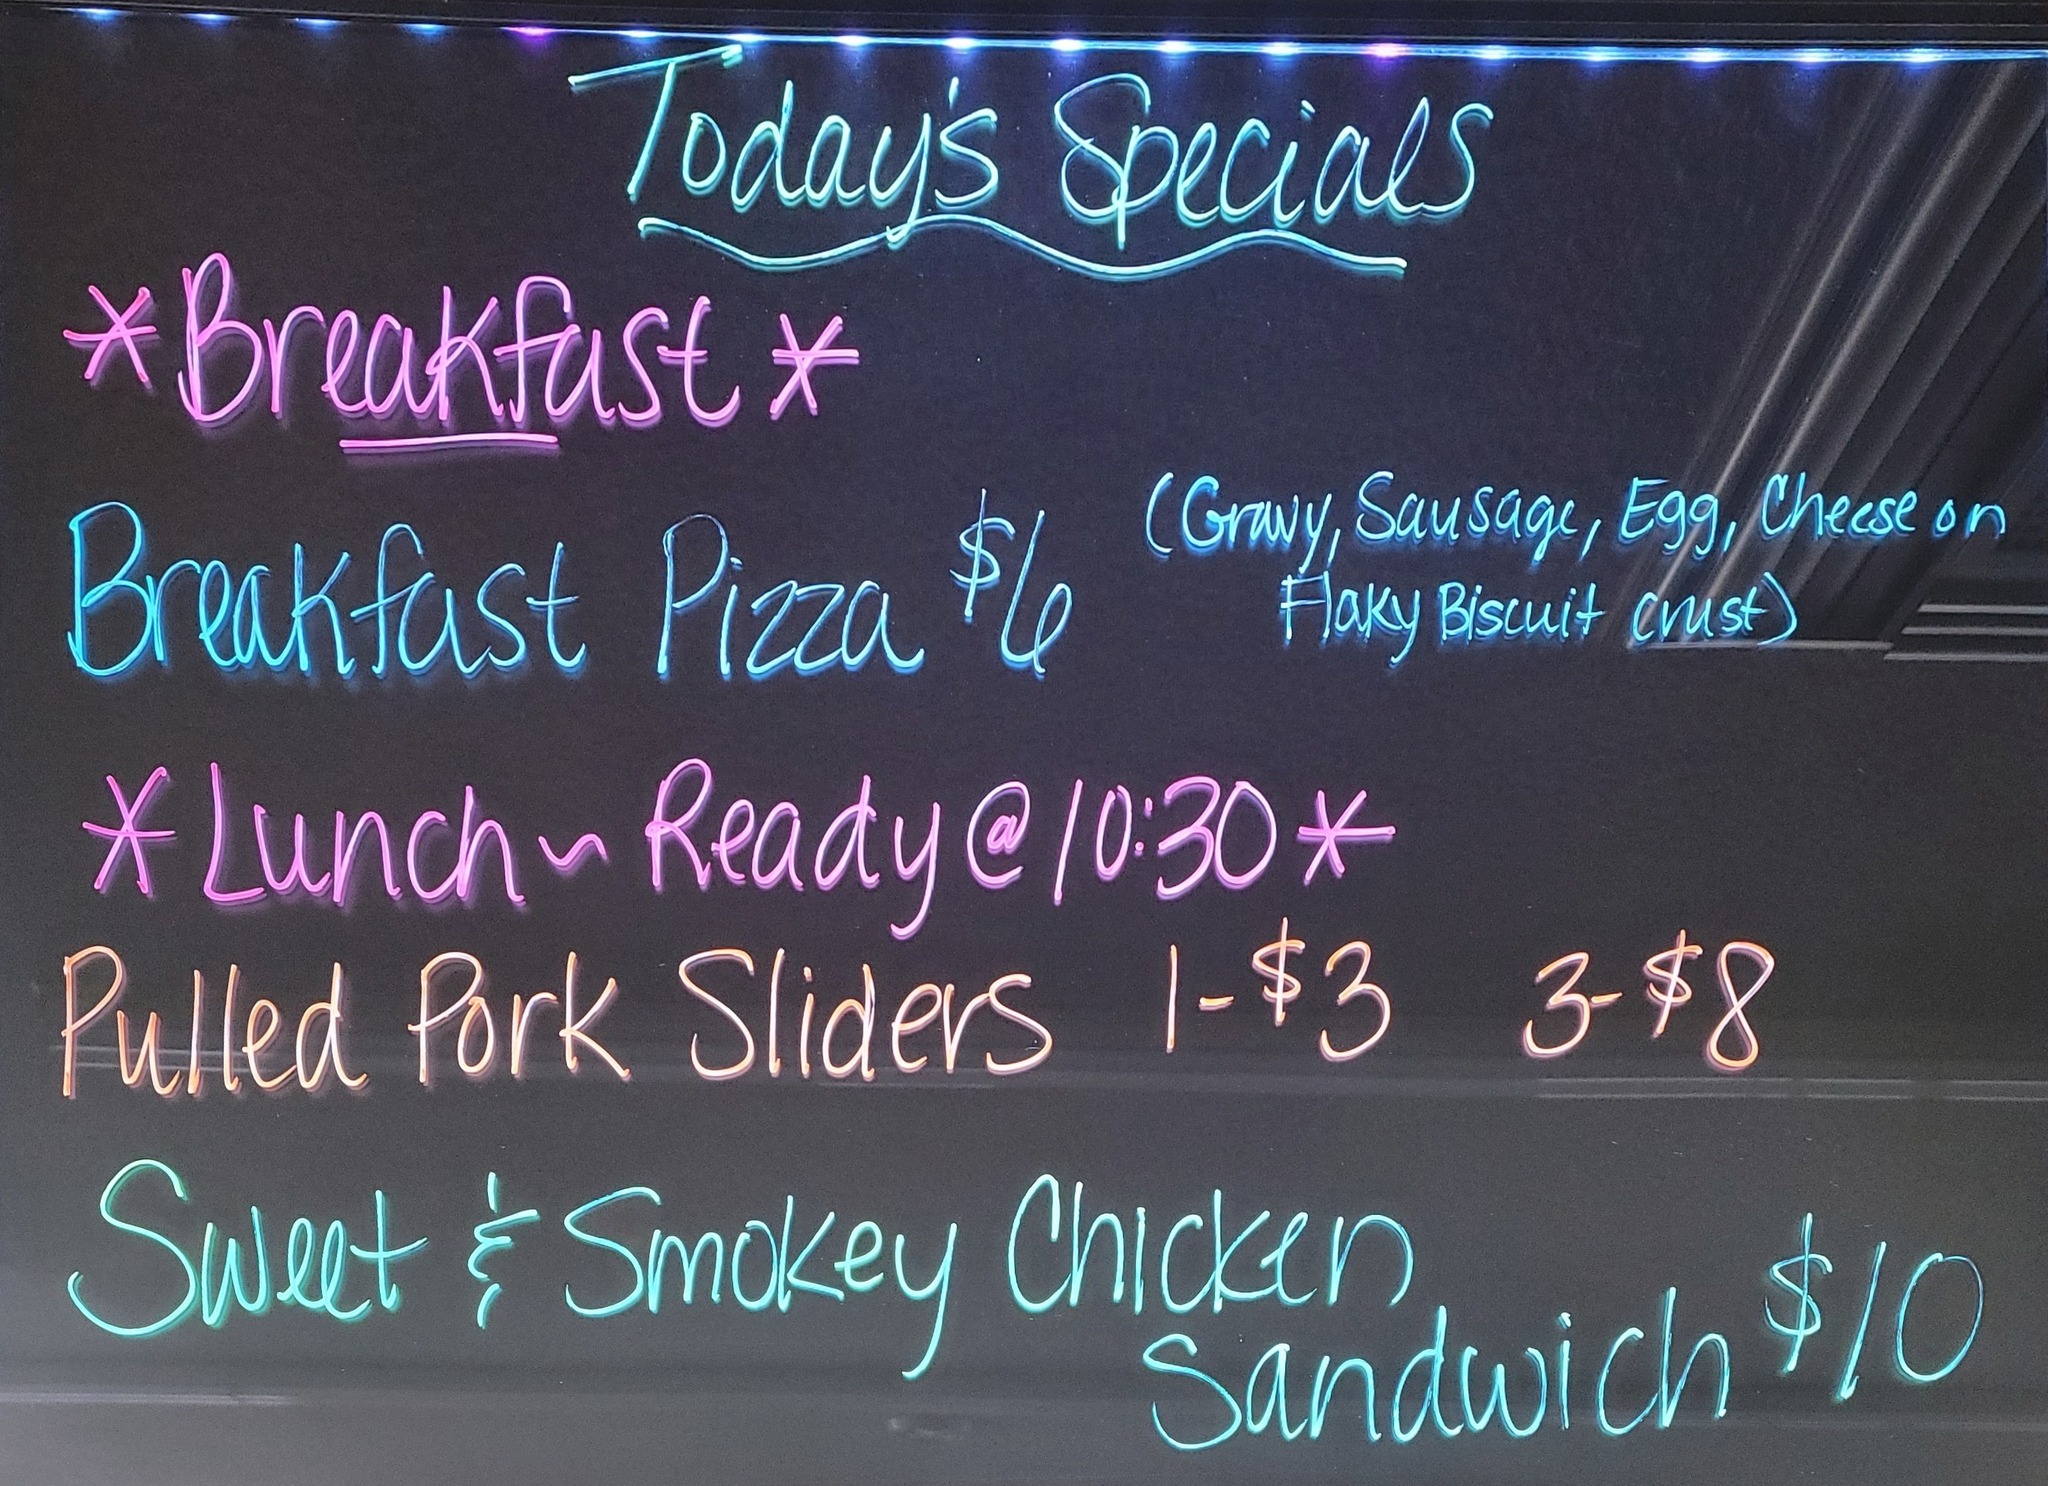 Today's Specials
*Breakfast*
Breakfast Pizza $6 (Gravy, Sausage, Egg, Cheese on
Flaky Biscuit crust)
*Lunch ~ Ready @ 10:30*
Pulled Pork Sliders 1-$3 3-$8
Sweet & Smokey Chicken
Sandwich $10